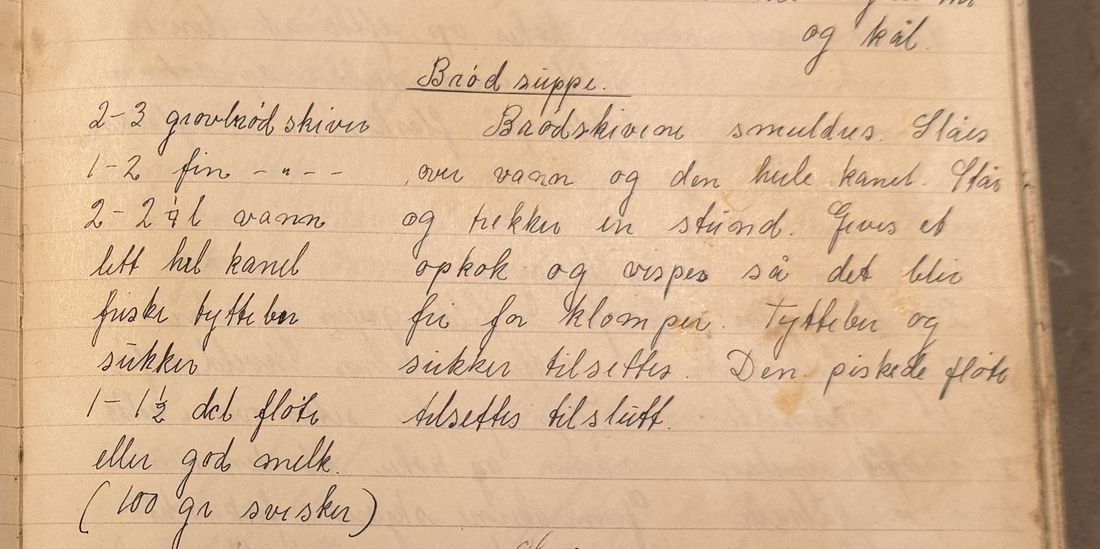 og kål.
Brödsuppe.
2-3 grovbrödskiver
1-2 fin - " - -
2-2 1/4 l vann
litt hel kanel
friske tyttebær
sukker
1-1 1/2 dcl fløte
eller god melk.
(100 gr svisker)
Brödskivene smuldres. Slåes
over vann og den hele kanel. Står
og trekker en stund. Gives et
opkok og vispes så det blir
fri for klomper. Tyttebær og
sukker tilsettes. Den piskede fløte
tilsettes tilslutt.